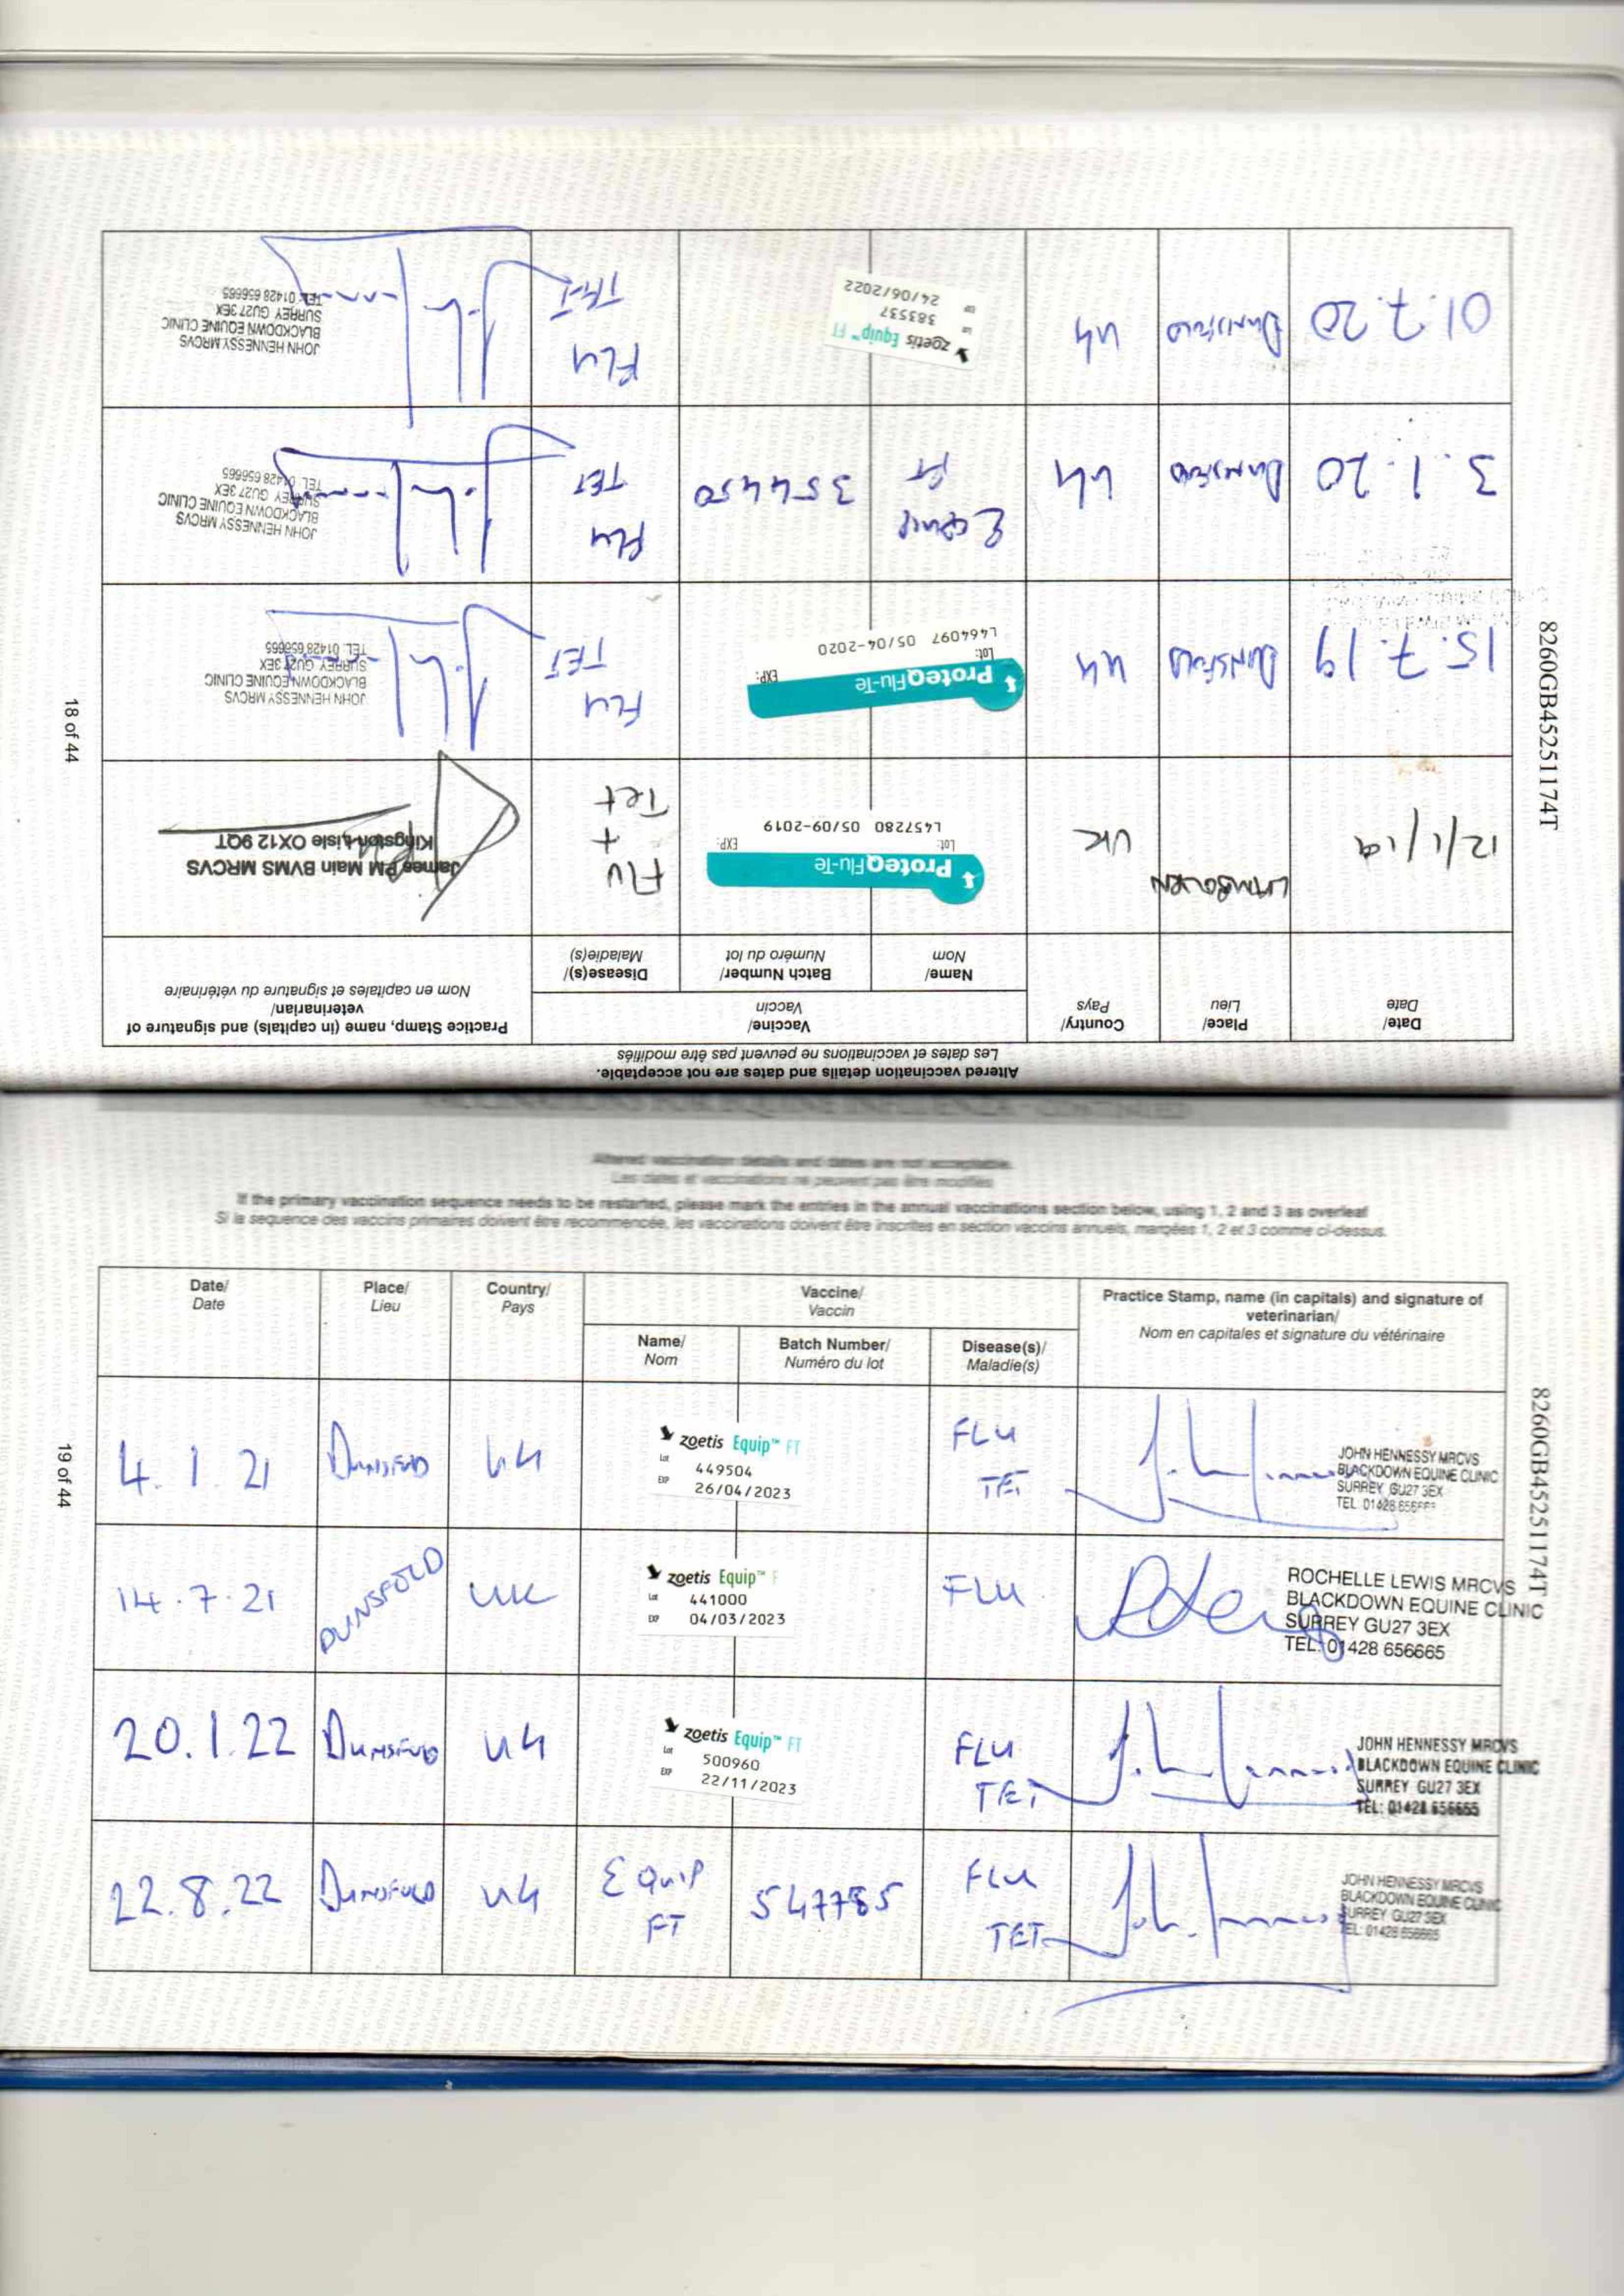 18 of 44
8260GB45251174T
Altered vaccination details and dates are not acceptable.
Les dates et vaccinations ne peuvent pas être modifiés
Date/
Date
Place/
Lieu
Country/
Pays
Vaccine/
Vaccin
Name/
Nom
Batch Number/
Numéro du lot
Disease(s)/
Maladie(s)
Practice Stamp, name (in capitals) and signature of
veterinarian/
Nom en capitales et signature du vétérinaire
12/1/19
LAMBOURN
UK
ProteqFlu-Te
Lot: EXP:
L457280 05/09-2019
Flu
+
Tet
James PM Main BVMS MRCVS
Kingston Lisle OX12 9QT
15.7.19
DUNSFOLD
UK
ProteqFlu-Te
Lot: EXP:
L464097 05/04-2020
FLU
TET
JOHN HENNESSY MRCVS
BLACKDOWN EQUINE CLINIC
SURREY GU27 3EX
TEL: 01428 656665
3.1.20
DUNSFOLD
UK
EQUIP
FT
354450
FLU
TET
JOHN HENNESSY MRCVS
BLACKDOWN EQUINE CLINIC
SURREY GU27 3EX
TEL: 01428 656665
01.7.20
DUNSFOLD
UK
zoetis Equip™ FT
Lot 383537
EXP 24/06/2022
FLU
TET
JOHN HENNESSY MRCVS
BLACKDOWN EQUINE CLINIC
SURREY GU27 3EX
TEL: 01428 656665
Altered vaccination details and dates are not acceptable.
Les dates et vaccinations ne peuvent pas être modifiés
If the primary vaccination sequence needs to be restarted, please mark the entries in the annual vaccinations section below, using 1, 2 and 3 as overleaf
Si la sequence des vaccins primaires doivent être recommencée, les vaccinations doivent être inscrites en section vaccins annuels, margées 1, 2 et 3 comme ci-dessus.
19 of 44
8260GB45251174T
Date/
Date
Place/
Lieu
Country/
Pays
Vaccine/
Vaccin
Name/
Nom
Batch Number/
Numéro du lot
Disease(s)/
Maladie(s)
Practice Stamp, name (in capitals) and signature of
veterinarian/
Nom en capitales et signature du vétérinaire
4.1.21
DUNSFOLD
UK
zoetis Equip™ FT
Lot 449504
EXP 26/04/2023
FLU
TET
JOHN HENNESSY MRCVS
BLACKDOWN EQUINE CLINIC
SURREY GU27 3EX
TEL: 01428
14.7.21
DUNSFOLD
UK
zoetis Equip™ F
Lot 441000
EXP 04/03/2023
FLU
ROCHELLE LEWIS MRCVS
BLACKDOWN EQUINE CLINIC
SURREY GU27 3EX
TEL: 01428 656665
20.1.22
DUNSFOLD
UK
zoetis Equip™ FT
Lot 500960
EXP 22/11/2023
FLU
TET
JOHN HENNESSY MRCVS
BLACKDOWN EQUINE CLINIC
SURREY GU27 3EX
TEL: 01428 656665
22.8.22
DUNSFOLD
UK
EQUIP
FT
547785
FLU
TET
JOHN HENNESSY MRCVS
BLACKDOWN EQUINE CLINIC
SURREY GU27 3EX
TEL: 01428 656665